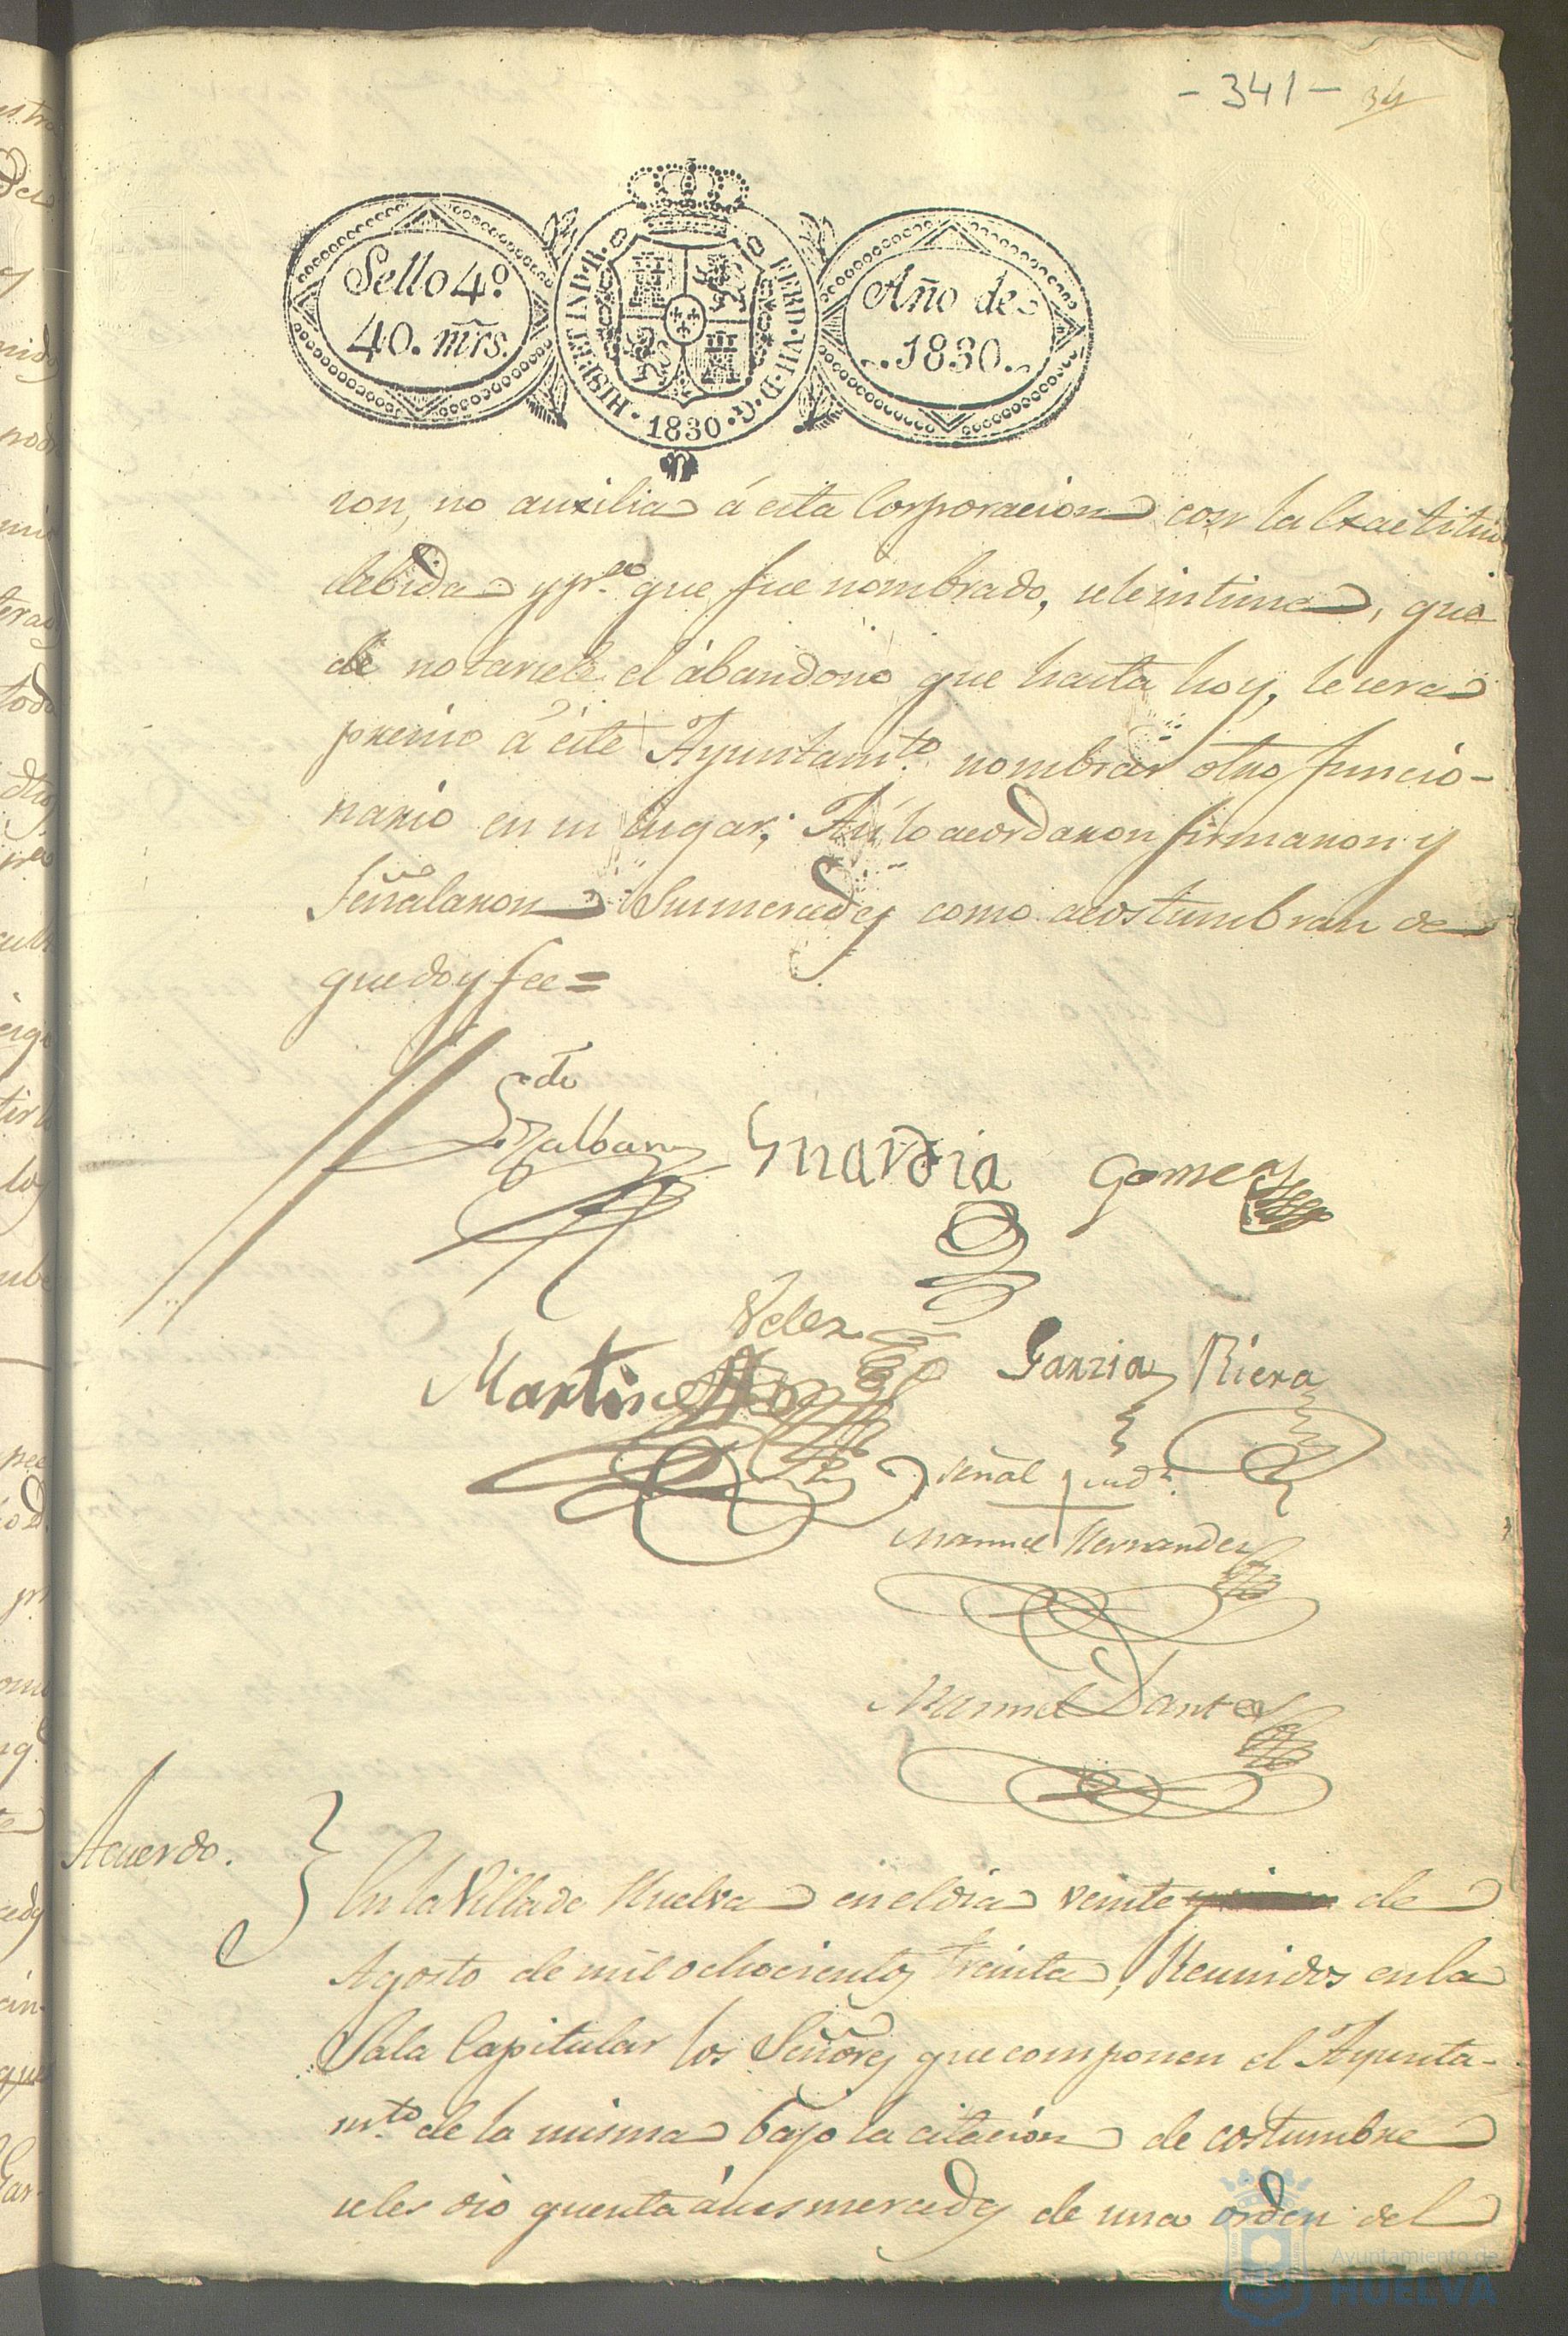 - 341 - 34
Sello 4º.
40. mrs.
HISP. ET IND. R.
FERD. VII. D. G.
1830
Año de
1830
ron, no auxilia á esta Corporacion con la Exactitud
debida y pª. que fue nombrado, sele intima, que
de notarsele el abandono que hasta hoy, le sera
presiso á este Ayuntamto. nombrar otro funcio-
nario en su lugar; Asi lo acordaron firmaron y
Señalaron Sus mercedes como acostumbran de
que doy fee=
Guardia Gomez
Velez
Martinez
Garzia Riera
señal
Manuel Hernandez
Manuel
Acuerdo.
En la Villa de Huelva en el dia veinte de
Agosto de mil ochocientos treinta, Reunidos en la
Sala Capitular los Señores que componen el Ayunta-
mto. de la misma bajo la citacion de costumbre
seles dio quenta á sus mercedes de una orden del
Ayuntamiento de
HUELVA